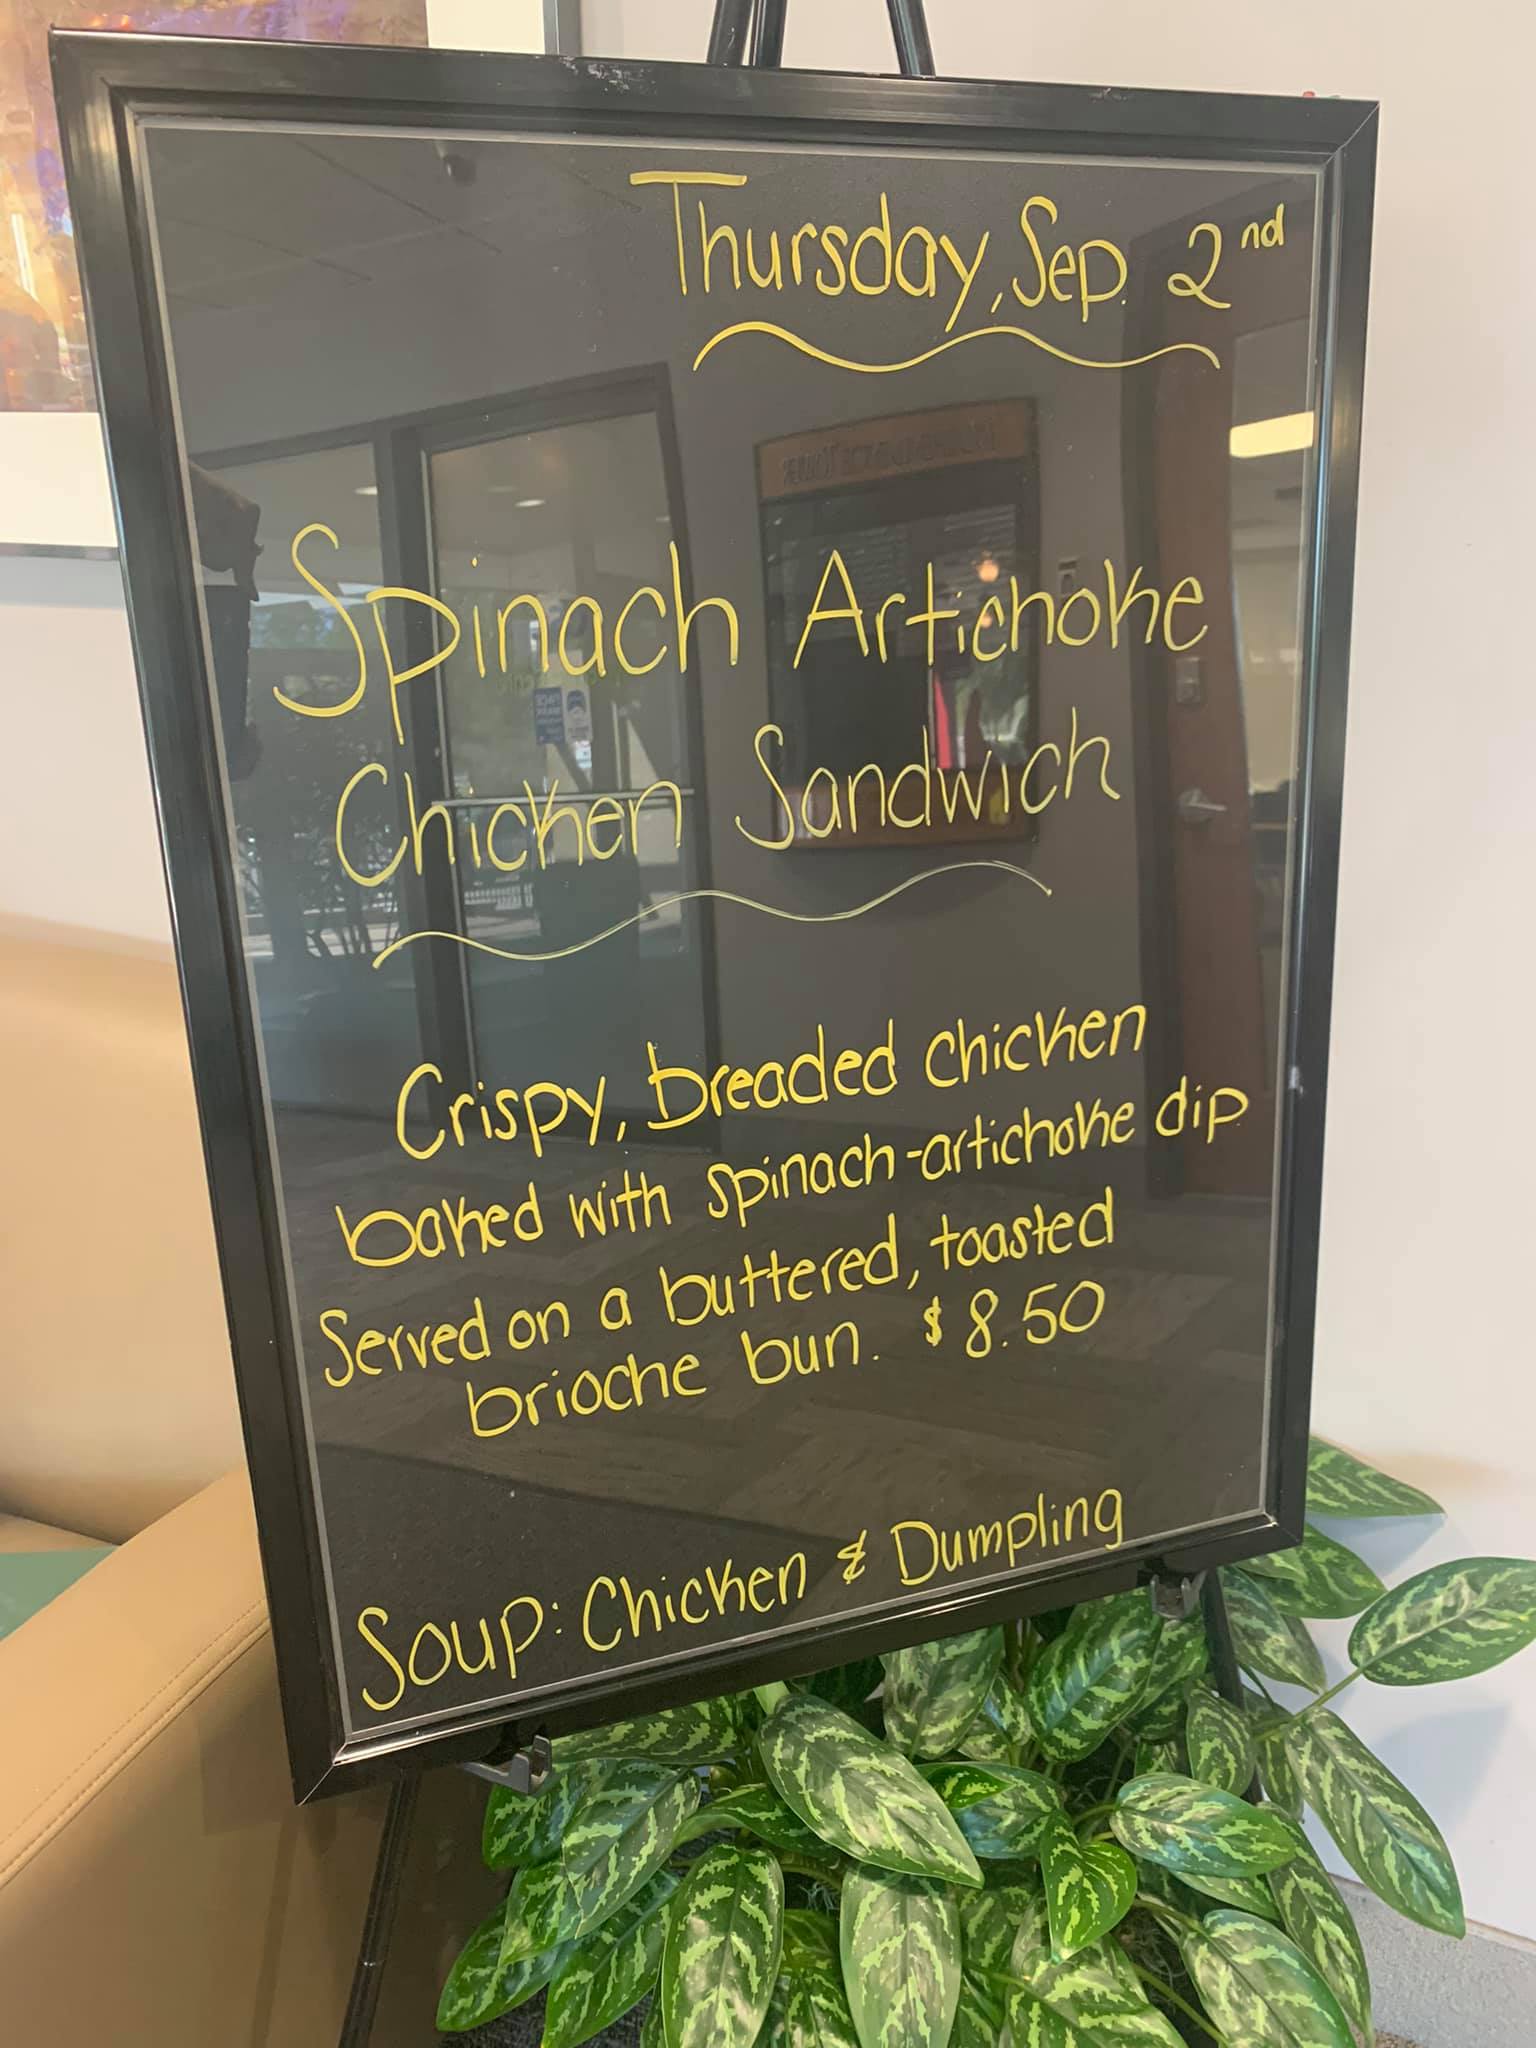 Thursday, Sep. 2nd
Spinach Artichoke
Chicken Sandwich
Crispy, breaded chicken
baked with spinach-artichoke dip.
Served on a buttered, toasted
brioche bun. $8.50
Soup: Chicken & Dumpling